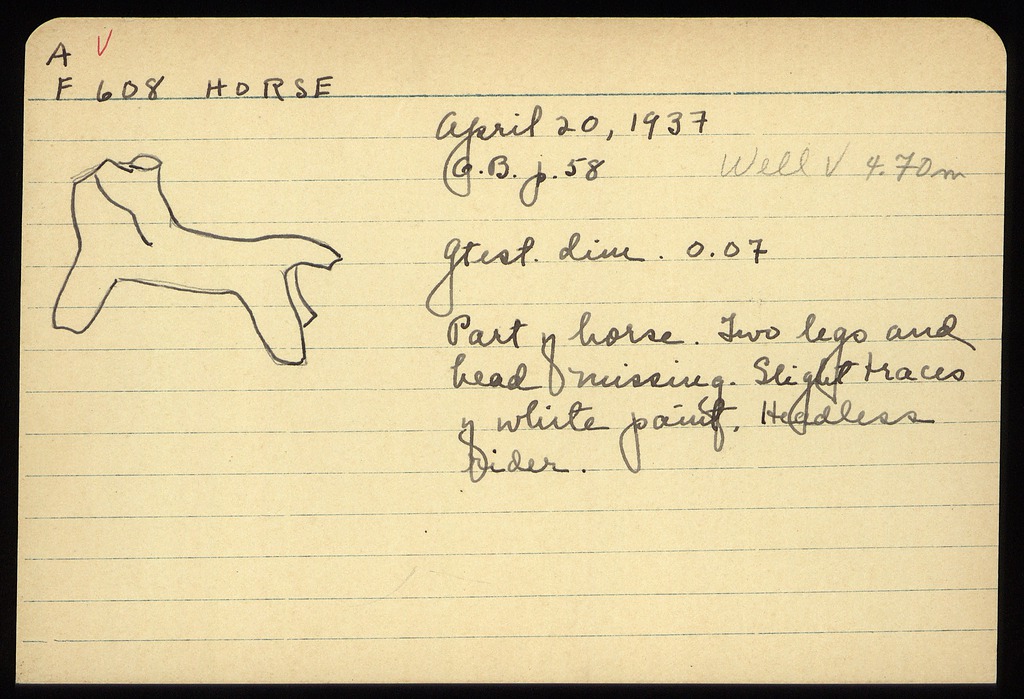 A V
F 608 HORSE
April 20, 1937
G.B. p. 58
Well V 4.70m
gtest. dim. 0.07
Part of horse. Two legs and
head missing. Slight traces
of white paint. Headless
rider.